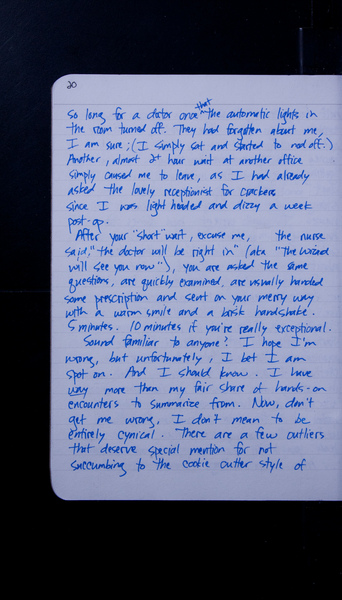 20
so long for a doctor once that the automatic lights in
the room turned off. They had forgotten about me,
I am sure; (I simply sat and started to nod off.)
Another, almost 2+ hour wait at another office
simply caused me to leave, as I had already
asked the lovely receptionist for crackers
since I was light headed and dizzy a week
post-op.
After your "short" wait, excuse me, the nurse
said, "the doctor will be right in" (aka "The Wizard
will see you now"), you are asked the same
questions, are quickly examined, are usually handed
some prescription and sent on your merry way
with a warm smile and a brisk handshake.
5 minutes. 10 minutes if you're really exceptional.
Sound familiar to anyone? I hope I'm
wrong, but unfortunately, I bet I am
spot on. And I should know. I have
way more than my fair share of hands-on
encounters to summarize from. Now, don't
get me wrong, I don't mean to be
entirely cynical. There are a few outliers
that deserve special mention for not
succumbing to the cookie cutter style of